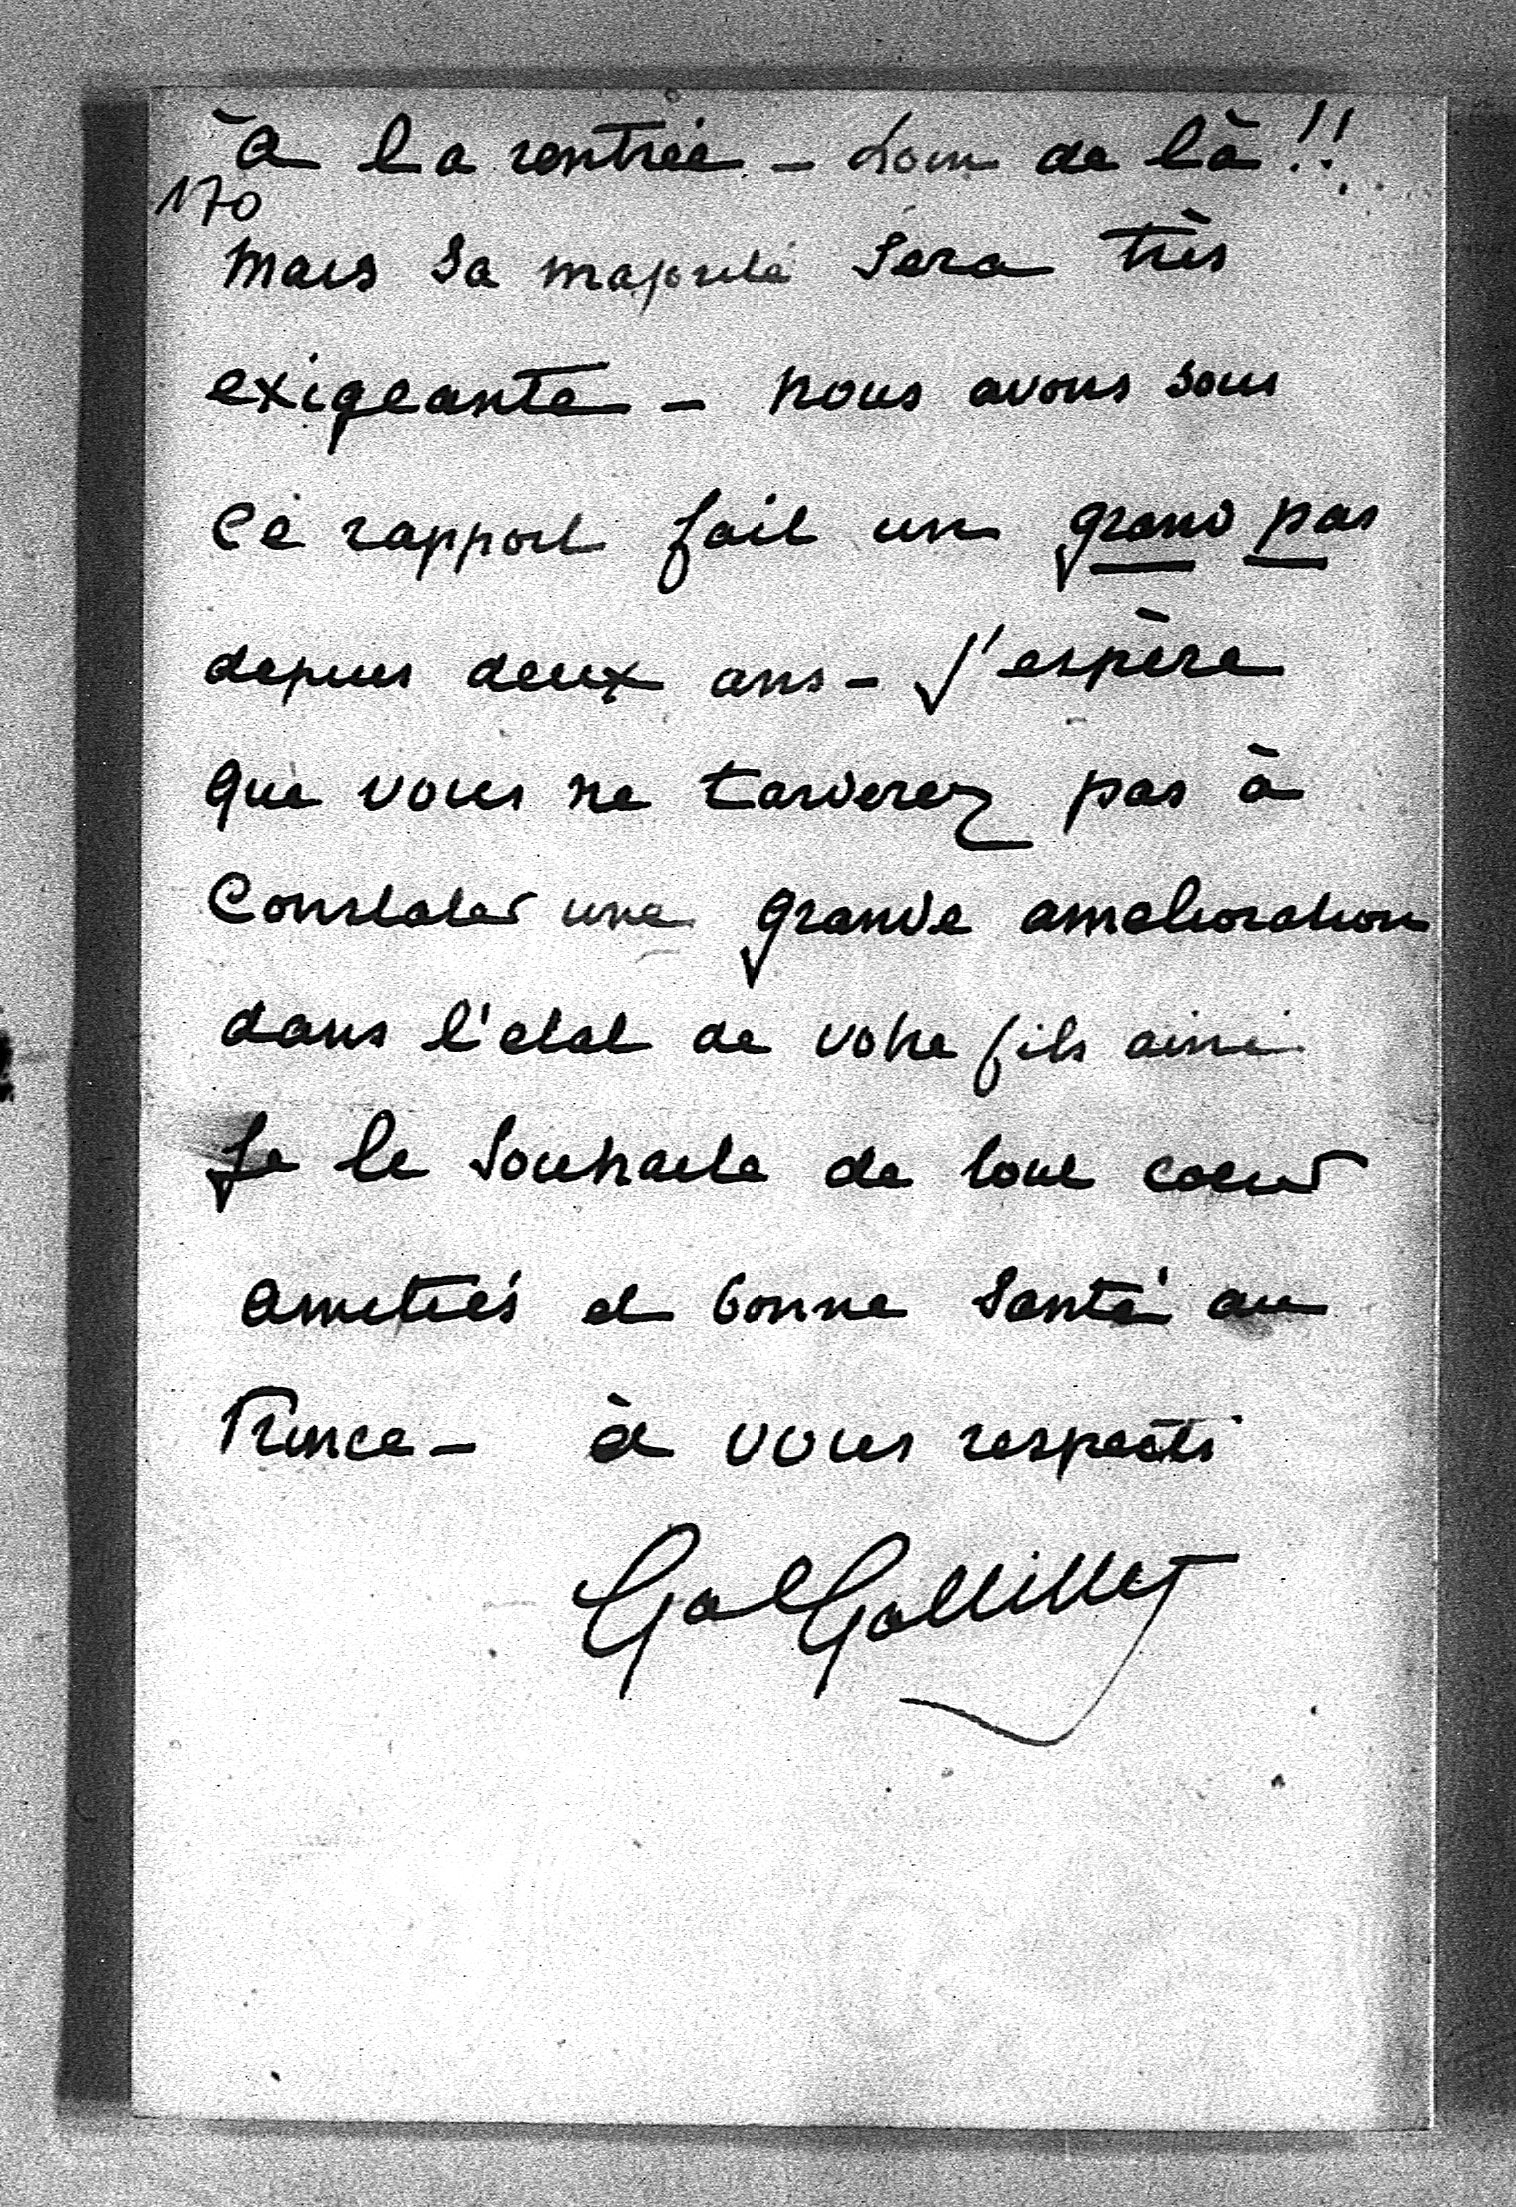 à la rentrée - Loin de là !!
170
mais sa majorité sera très
exigeante - nous avons sous
ce rapport fait un grand pas
depuis deux ans - J'espère
que vous ne tarderez pas à
Constater une grande amelioration
dans l'etat de votre fils ainé
Je le souhaite de tout coeur
amitiés et bonne santé au
Prince - à vous respects
Gal Galliffet